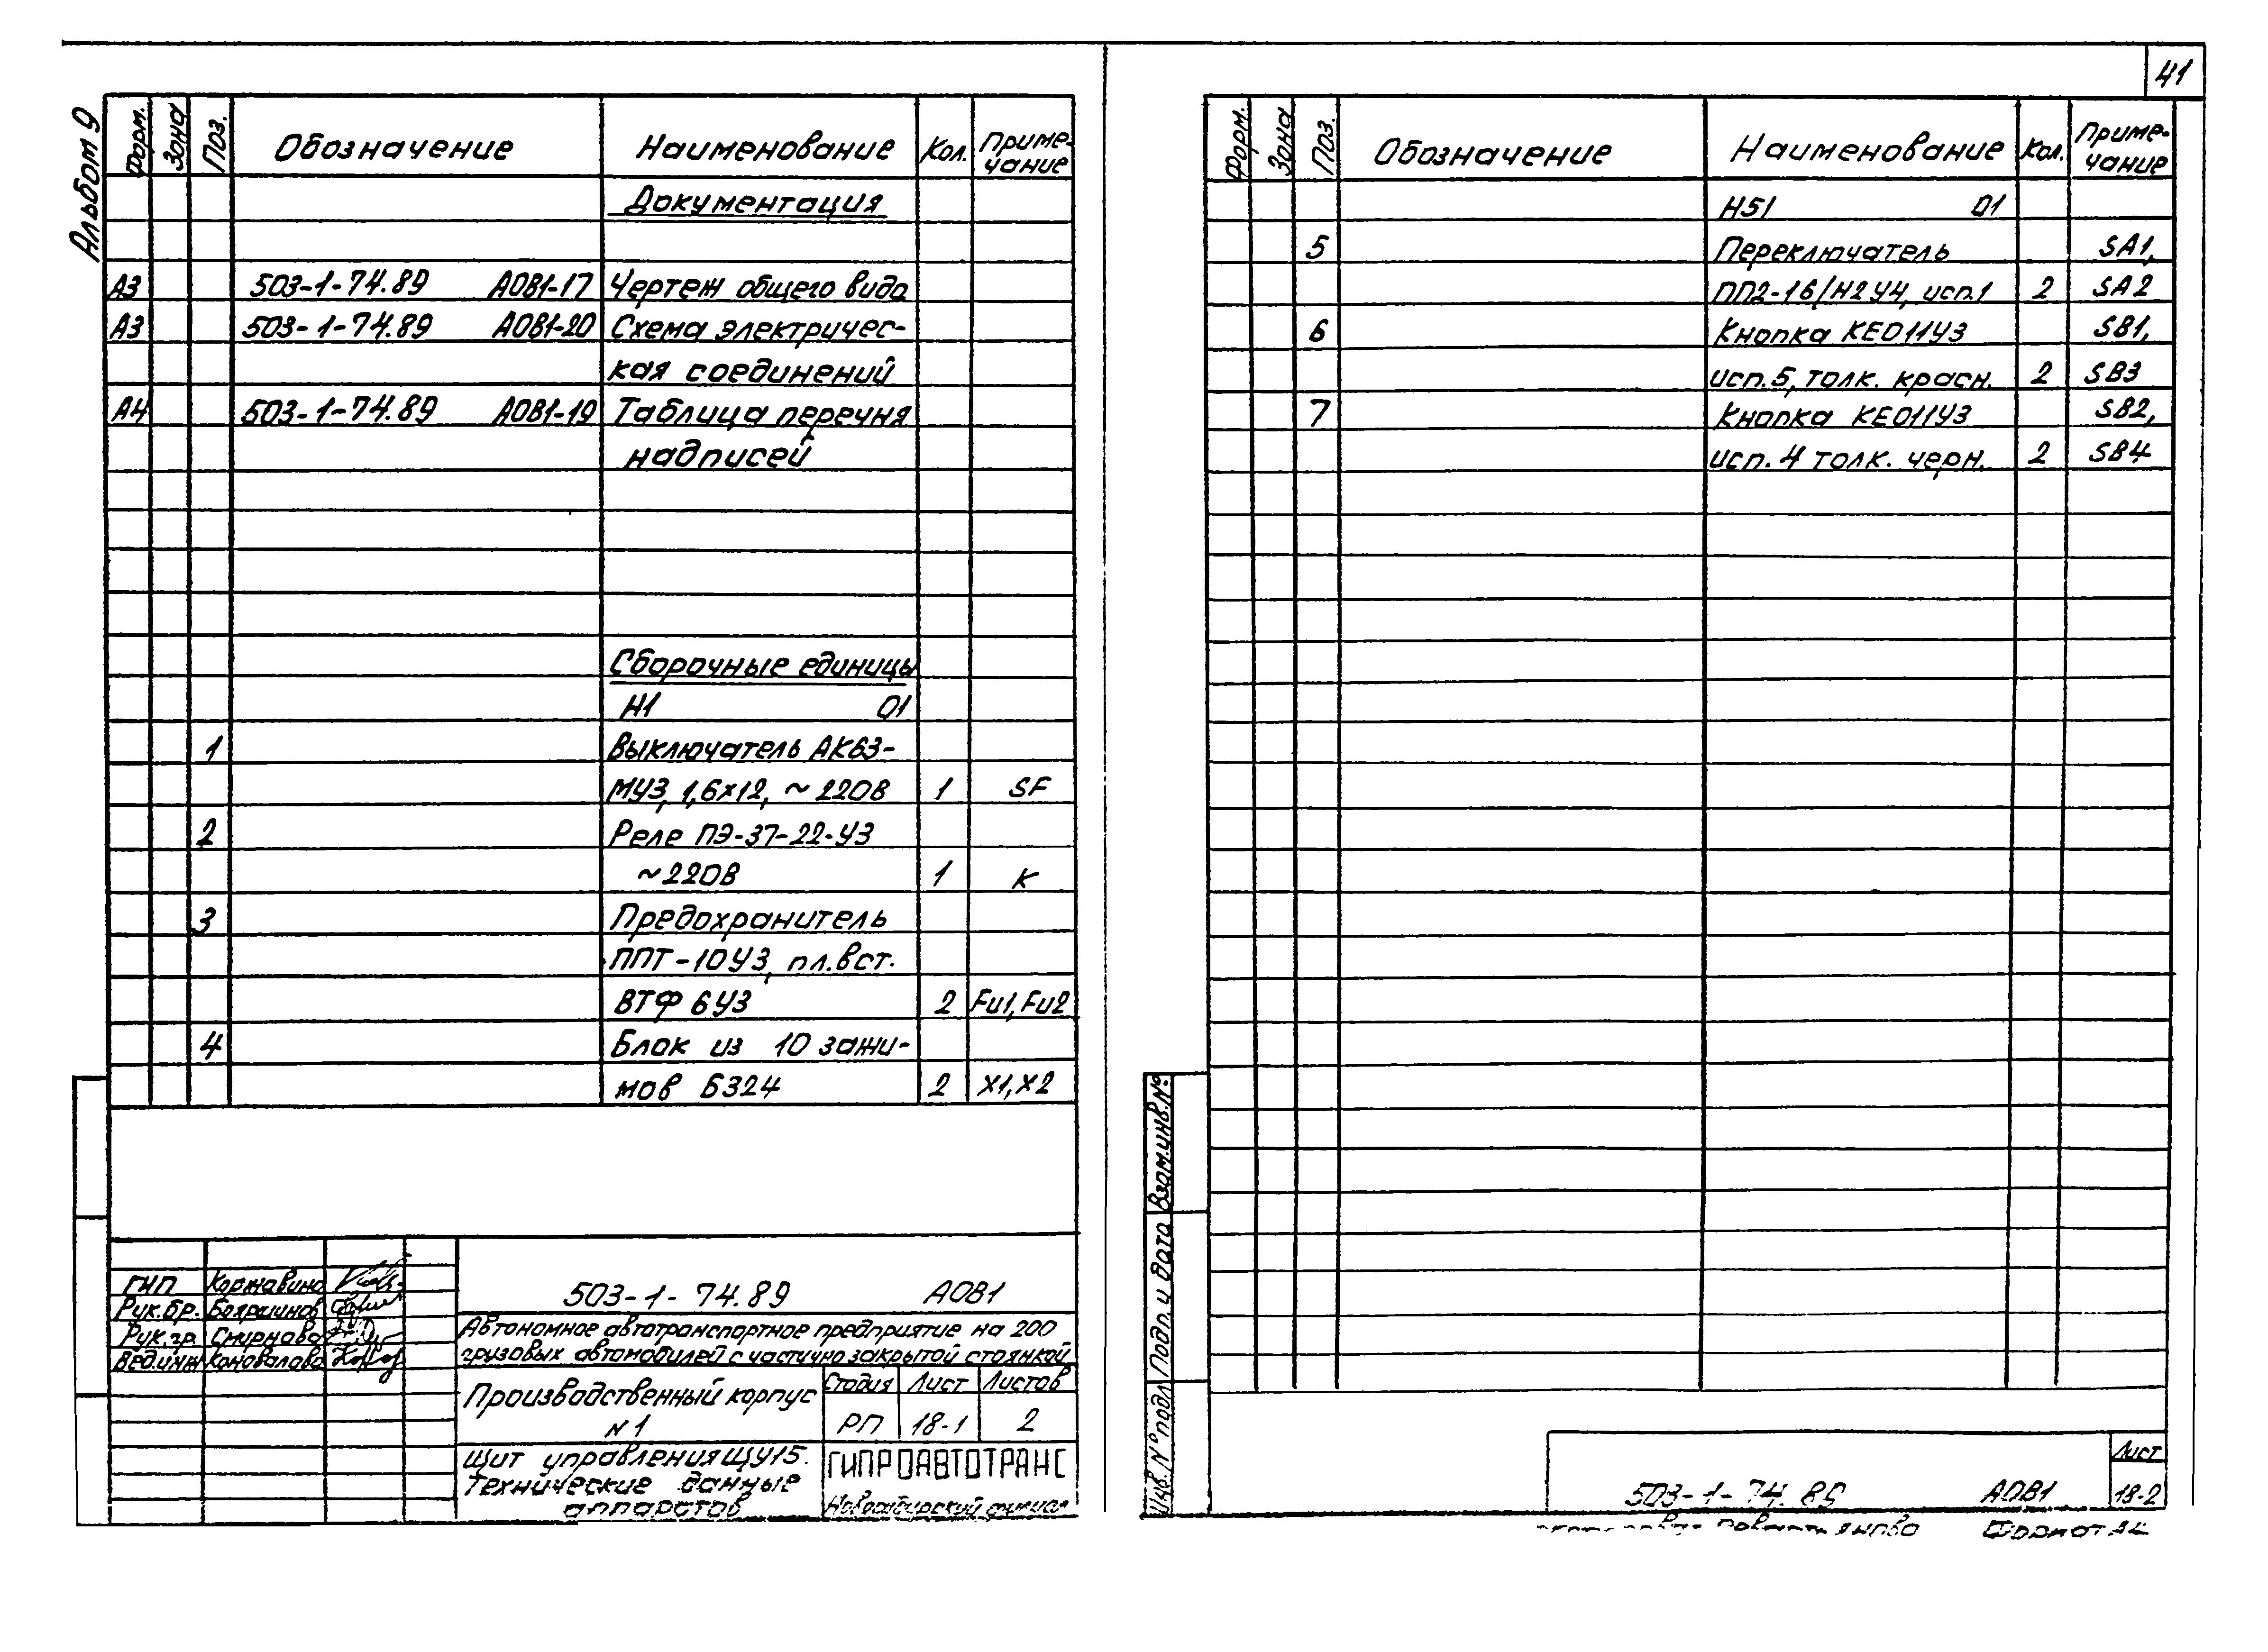 41
Альбом 9
Форм. Зона Поз. Обозначение Наименование Кол. Приме-
чание
Документация
А3 503-1-74.89 АОВ1-17 Чертеж общего вида
А3 503-1-74.89 АОВ1-20 Схема электричес-
кая соединений
А4 503-1-74.89 АОВ1-19 Таблица перечня
надписей
Сборочные единицы
Н1 01
1 Выключатель АК63-
МУ3, 1,6×12, ~220В 1 SF
2 Реле ПЭ-37-22-У3
~220В 1 К
3 Предохранитель
ППТ-10У3, пл.вст.
ВТФ 6У3 2 Fu1, Fu2
4 Блок из 10 зажи-
мов Б324 2 X1, X2
ГИП Коржавина
Рук.бр. Бояршинов
Рук.гр. Смирнова
Вед.инж Коновалова
503-1-74.89 АОВ1
Автономное автотранспортное предприятие на 200
грузовых автомобилей с частично закрытой стоянкой
Производственный корпус
N1
Стадия Лист Листов
РП 18-1 2
Щит управления ЩУ15.
Технические данные
аппаратов
ГИПРОАВТОТРАНС
Новосибирский филиал
Форм. Зона Поз. Обозначение Наименование Кол. Приме-
чание
Н51 01
5 Переключатель SA1,
ПП2-16/Н2У4, исп.1 2 SA2
6 Кнопка КЕ011У3 SB1,
исп.5, толк. красн. 2 SB3
7 Кнопка КЕ011У3 SB2,
исп.4 толк. черн. 2 SB4
Взам.инв.№
Подп. и дата
Инв.№подл
503-1-74.89 АОВ1
Лист
18-2
Формат